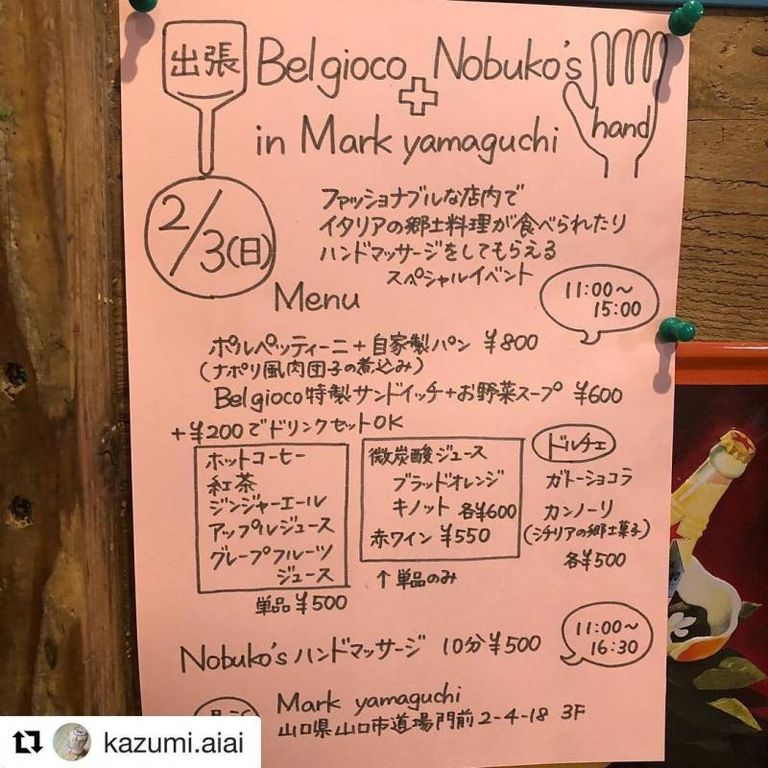 出張 Belgioco + Nobuko's hand
in Mark yamaguchi
2/3(日)
ファッショナブルな店内で
イタリアの郷土料理が食べられたり
ハンドマッサージをしてもらえる
スペシャルイベント
Menu
11:00～
15:00
ポルペッティーニ+自家製パン ¥800
(ナポリ風肉団子の煮込み)
Belgioco特製サンドイッチ+お野菜スープ ¥600
+¥200でドリンクセットOK
ホットコーヒー
紅茶
ジンジャーエール
アップルジュース
グレープフルーツ
ジュース
単品¥500
微炭酸ジュース
ブラッドオレンジ
キノット 各¥600
赤ワイン ¥550
↑単品のみ
ドルチェ
ガトーショコラ
カンノーリ
(シチリアの郷土菓子)
各¥500
Nobuko'sハンドマッサージ 10分¥500
11:00～
16:30
Mark yamaguchi
山口県山口市道場門前2-4-18 3F
kazumi.aiai